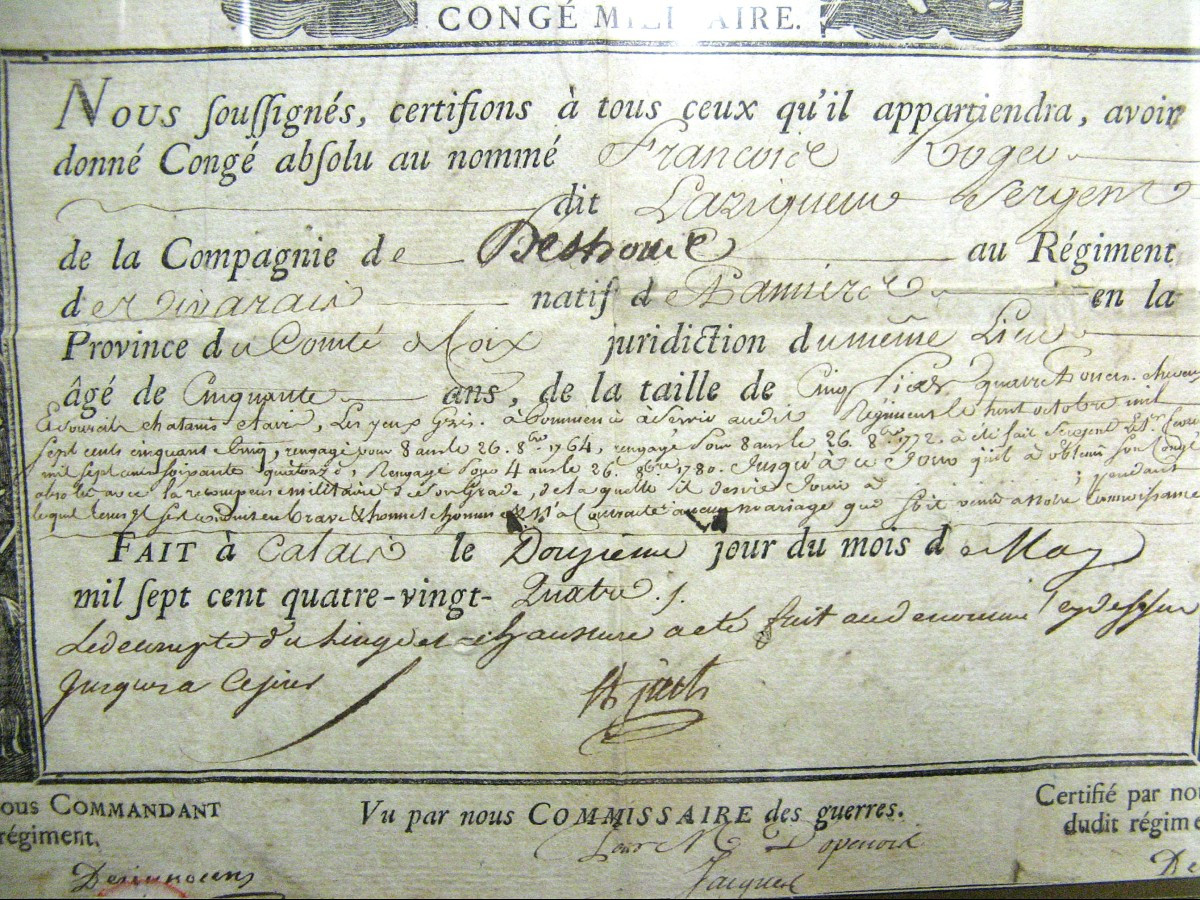 CONGÉ MILITAIRE.
Nous souſſignés, certifions à tous ceux qu'il appartiendra, avoir
donné Congé abſolu au nommé Francoice Roger
dit Sergent
de la Compagnie de au Régiment
de Vivarais natif de en la
Province du Comté de Foix juridiction du même Lieu
âgé de Cinquante ans, de la taille de Cinq pieds quatre pouces. cheveux
et sourcils chatains clairs, Les yeux Gris. à Commencé à servir audit Régiment le huit octobre mil
sept cents cinquant cinq, rengagé pour 8 ans le 26. 8.bre 1764, rengagé pour 8 ans le 26. 8.bre 1772. à été fait Sergent
mil sept cens soixante quatorze, Rengagé pour 4 ans le 26. 8bre 1780. Jusqu'à ce Jour qu'il à obtenu son Congé
absolu avec la recompense militaire de son Grade, de la quelle il desire Jouir à pendant
lequel tems il s'est conduit en brave & honnete homme & N'a Contracté aucun mariage que soit venu a Notre Connoissance
FAIT à Calais le Douzieme jour du mois de May
mil ſept cent quatre-vingt- Quatre ./.
Le decompte du Linge et chaussure a eté fait au denommé cy dessus
Jusqu'a ce jour
ous COMMANDANT
régiment.
Vu par nous COMMISSAIRE des guerres.
Certifié par nou
dudit régime
Desinnocens
Pour M.
Jacques
De